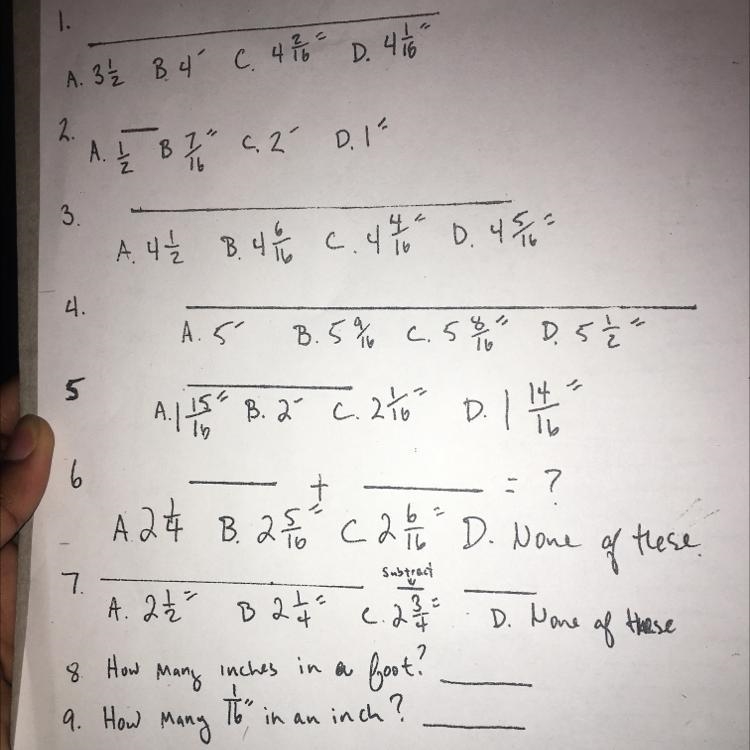 1.
A. 3 1/2 B. 4" C. 4 2/16" D. 4 1/16"
2.
A. 1/2 B 7/16" C. 2" D. 1"
3.
A. 4 1/2 B. 4 6/16 C. 4 4/16" D. 4 5/16"
4.
A. 5" B. 5 9/16 C. 5 8/16" D. 5 1/2"
5
A. 1 15/16" B. 2" C. 2 1/16" D. 1 14/16"
6 + = ?
A. 2 1/4 B. 2 5/16" C 2 6/16" D. None of these.
7. Subtract
A. 2 1/2" B 2 1/4" C. 2 3/4" D. None of these
8. How Many inches in a foot?
9. How Many 1/16" in an inch?